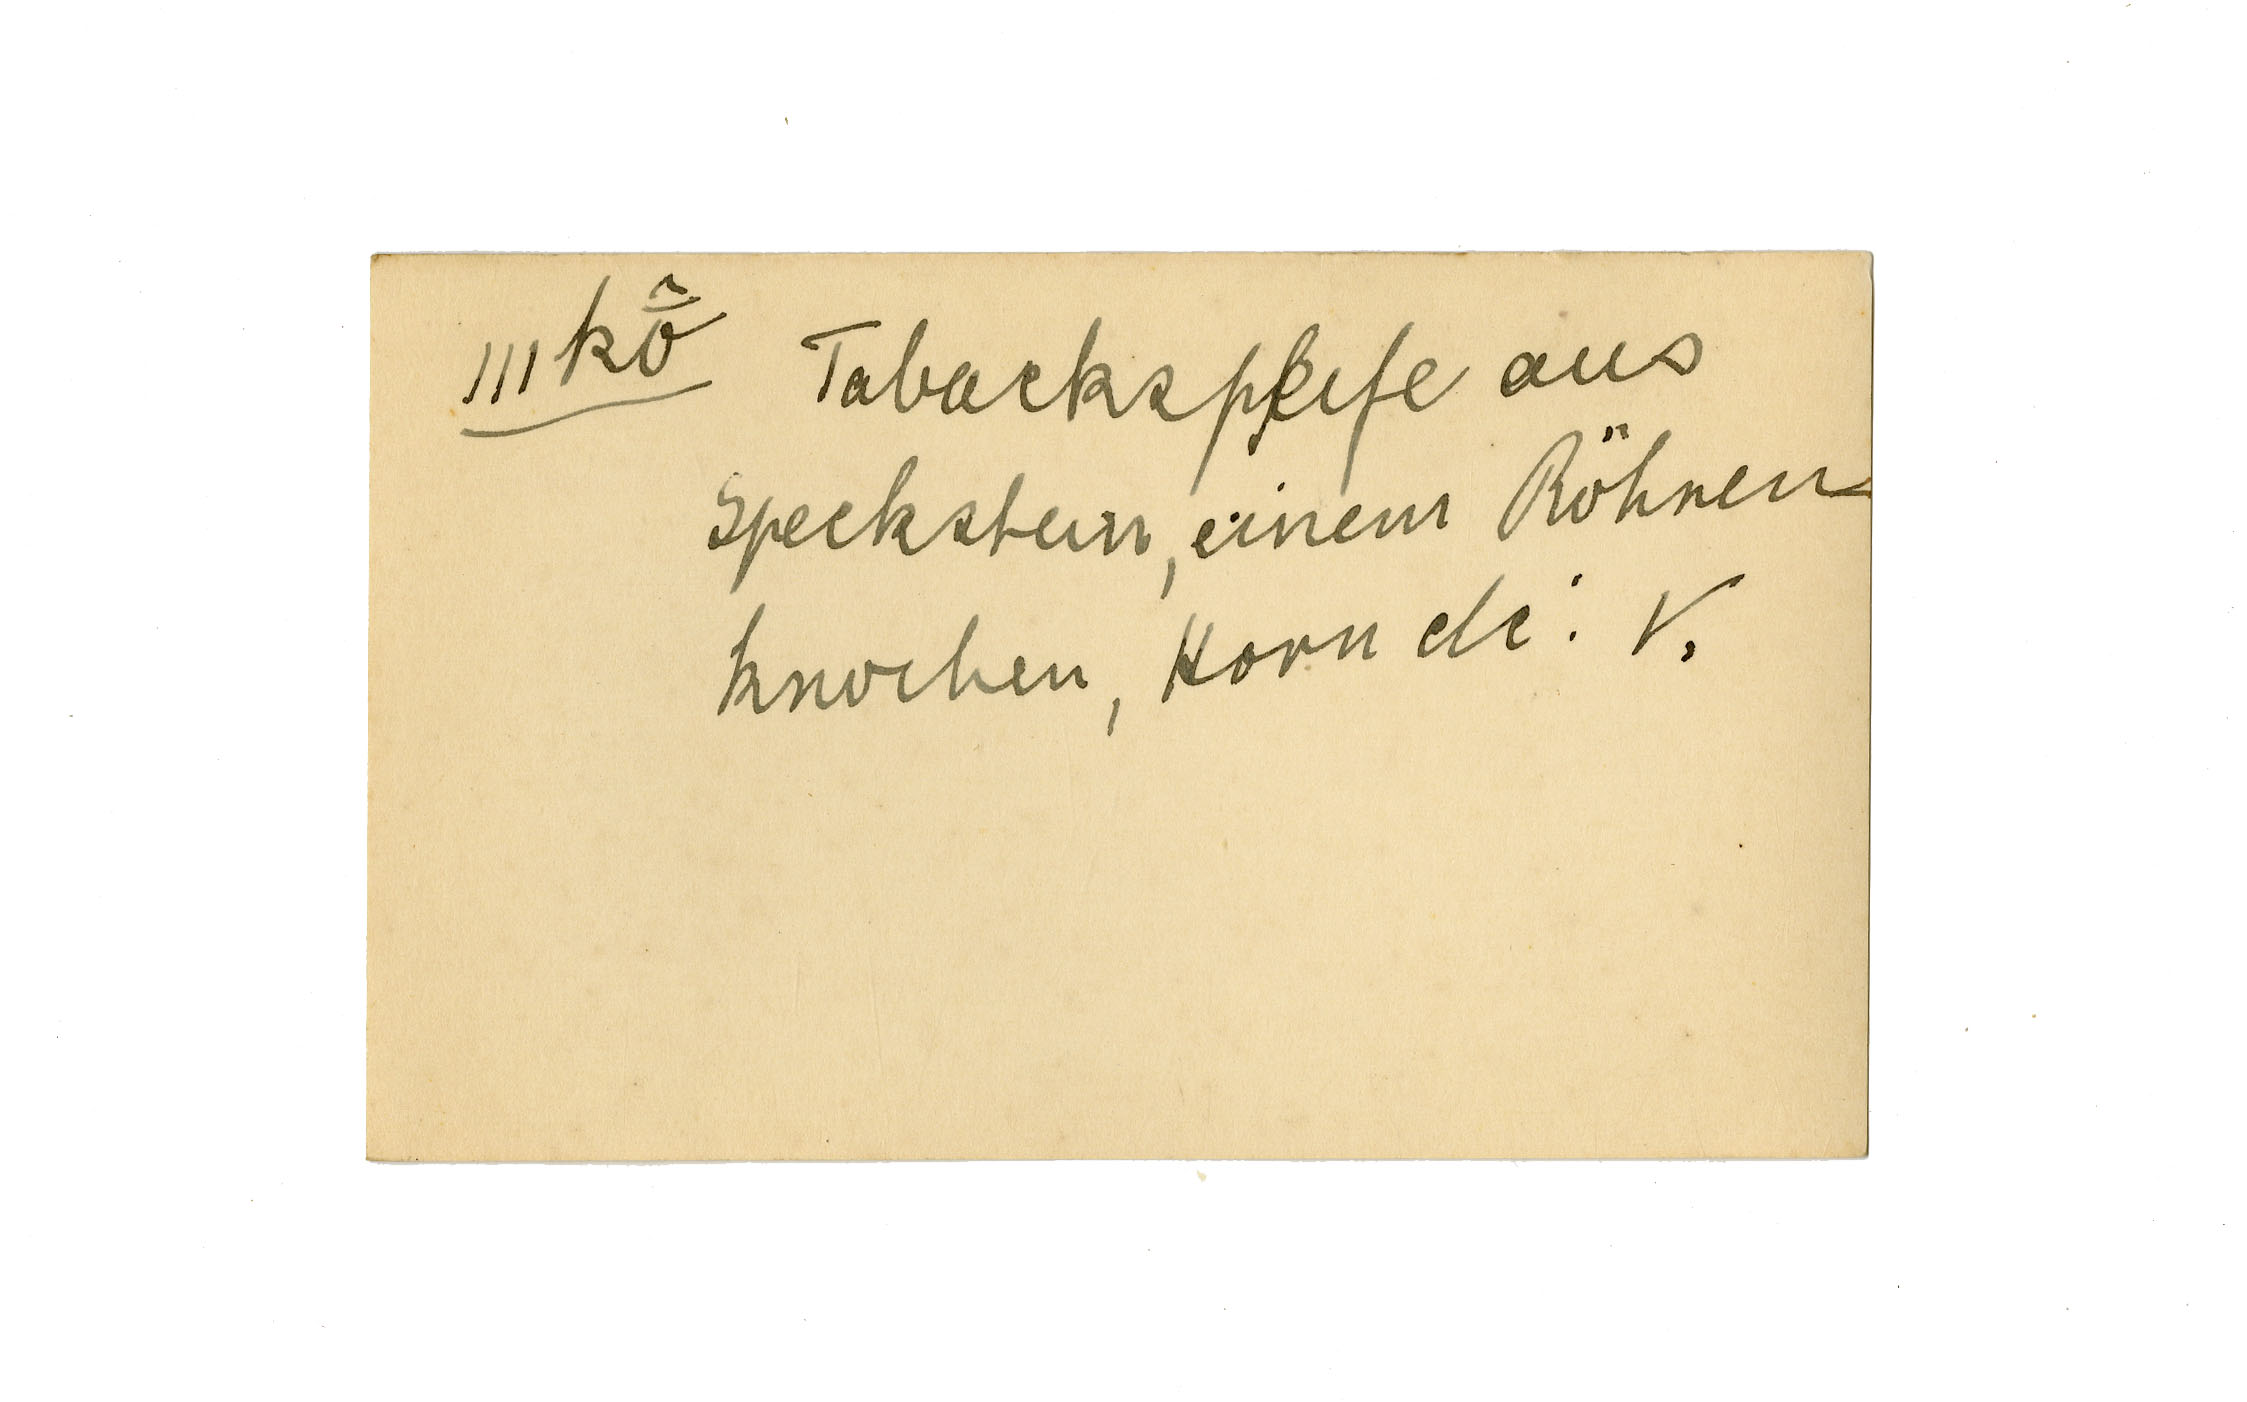 III kö Tabackspfeife aus
Speckstein, einem Röhren
knochen, Horn etc. V.